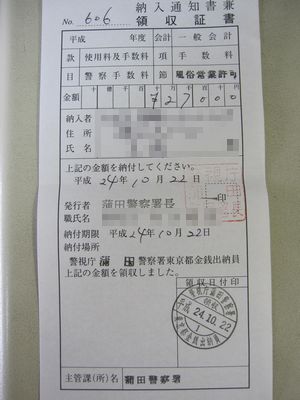 納入通知書兼
No. 606 領収証書
平成 年度 会計 一般会計
款 使用料及手数料 項 手数料
目 警察手数料 節 風俗営業許可
金額 十 億 千 百 十 万 千 百 十 円
¥27000
納入者
住所
氏名
上記の金額を納付してください。
平成 24年10月22日
印
発行者 蒲田警察署長
職氏名
納付期限 平成24年10月22日
納付場所
警視庁 蒲田 警察署東京都金銭出納員
上記の金額を領収しました。
領収日付印
領収
平成 24.10.22
1
主管課(所)名 蒲田警察署